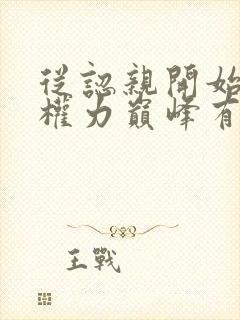 從認親開始
權力巔峰有
王戰